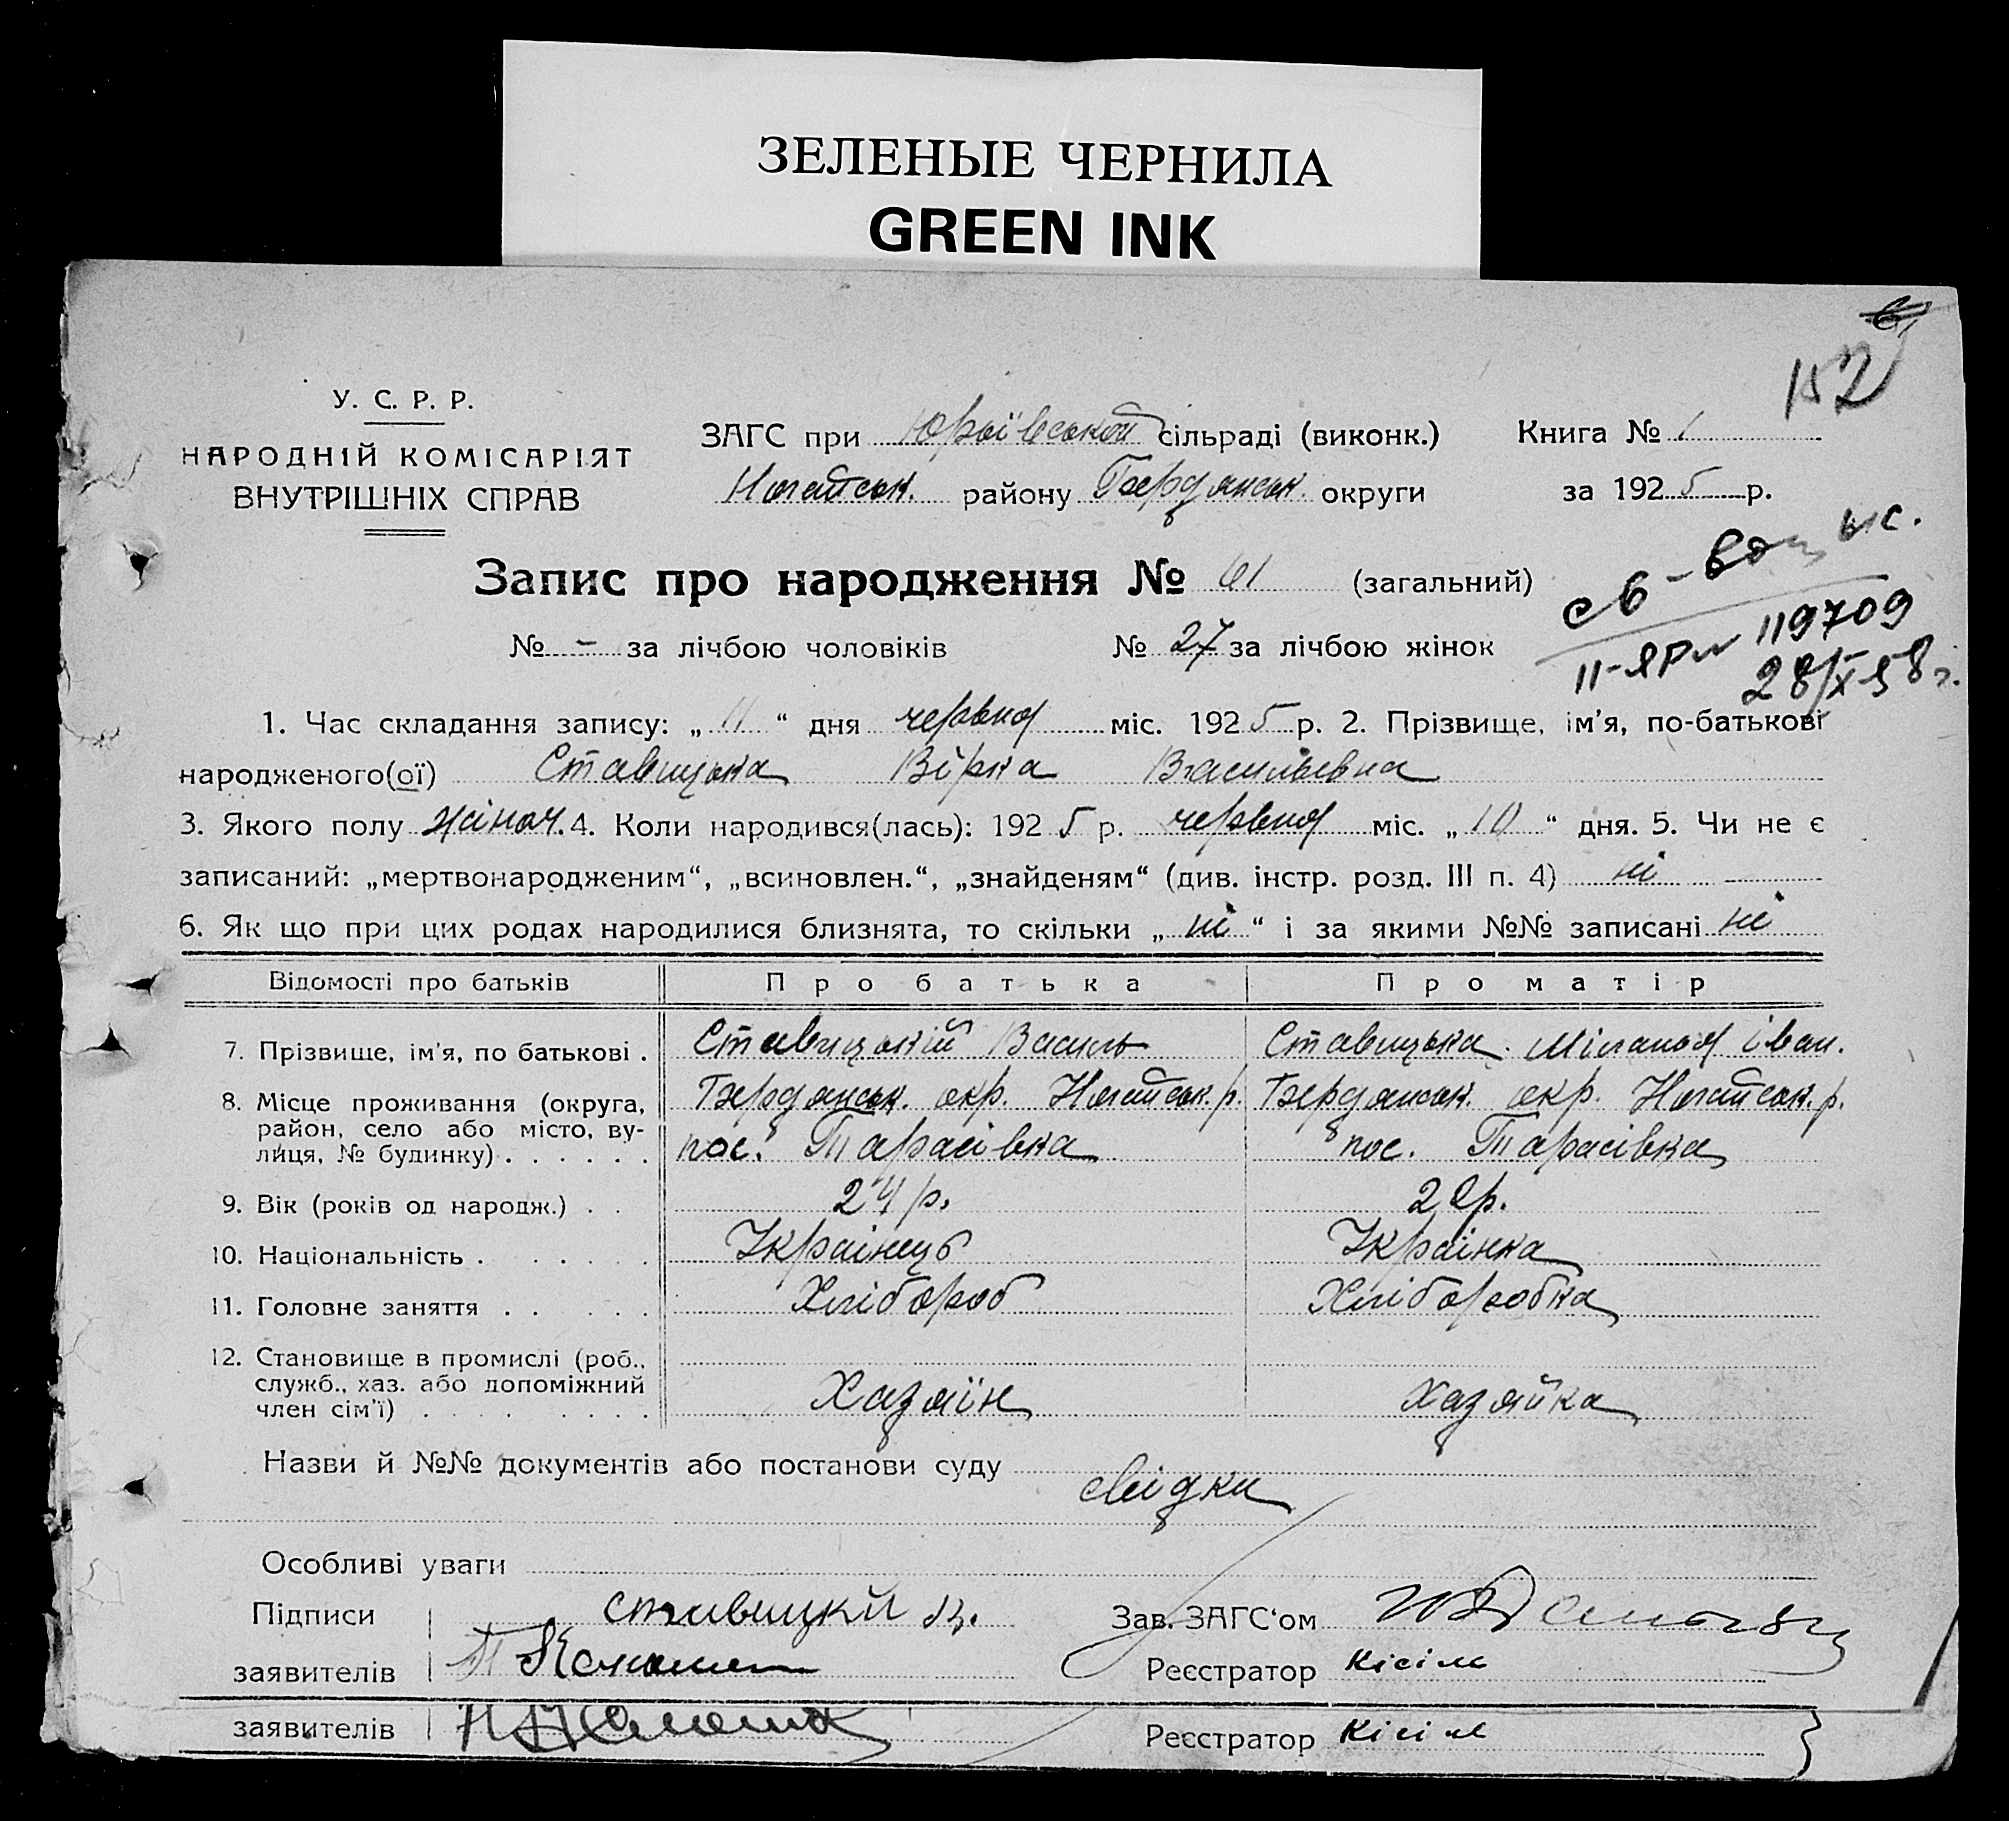 ЗЕЛЕНЫЕ ЧЕРНИЛА
GREEN INK
152
У. С. Р. Р.
НАРОДНІЙ КОМІСАРІЯТ
ВНУТРІШНІХ СПРАВ
ЗАГС при Юрьївської сільраді (виконк.) Книга № 1
Ногайськ. району Бердянськ. округи за 1925 р.
Запис про народження № 61 (загальний)
№ - за лічбою чоловіків № 27 за лічбою жінок
св-во
II-ЯР № 119709
28/X 58 г.
1. Час складання запису: „ 11 “ дня червня міс. 1925 р. 2. Прізвище, ім'я, по-батькові
народженого(ої) Ставицька Вірка Васильевна
3. Якого полу жіноч. 4. Коли народився(лась): 1925 р. червня міс. „ 10 “ дня. 5. Чи не є
записаний: „мертвонародженим“, „всиновлен.“, „знайденям“ (див. інстр. розд. III п. 4) ні
6. Як що при цих родах народилися близнята, то скільки „ ні “ і за якими №№ записані ні
Відомості про батьків Про батька Про матір
7. Прізвище, ім'я, по батькові . Ставицькій Василь Ставицька Міланія Іван.
8. Місце проживання (округа, район, село або місто, вулиця, № будинку) . . . . . . Бердянськ. окр. Ногайськ. р. пос. Тарасівка Бердянськ. окр. Ногайськ. р. пос. Тарасівка
9. Вік (років од народж.) . . 24 р. 22 р.
10. Національність . . . . . Українець Українка
11. Головне заняття . . . . . Хлібороб Хліборобка
12. Становище в промислі (роб., служб., хаз. або допоміжний член сім'ї) . . . . . Хазяїн Хазяйка
Назви й №№ документів або постанови суду
свідки
Особливі уваги
Підписи Ставицкий В. Зав. ЗАГС'ом
заявителів Реєстратор Кісіль
заявителів Реєстратор Кісіль